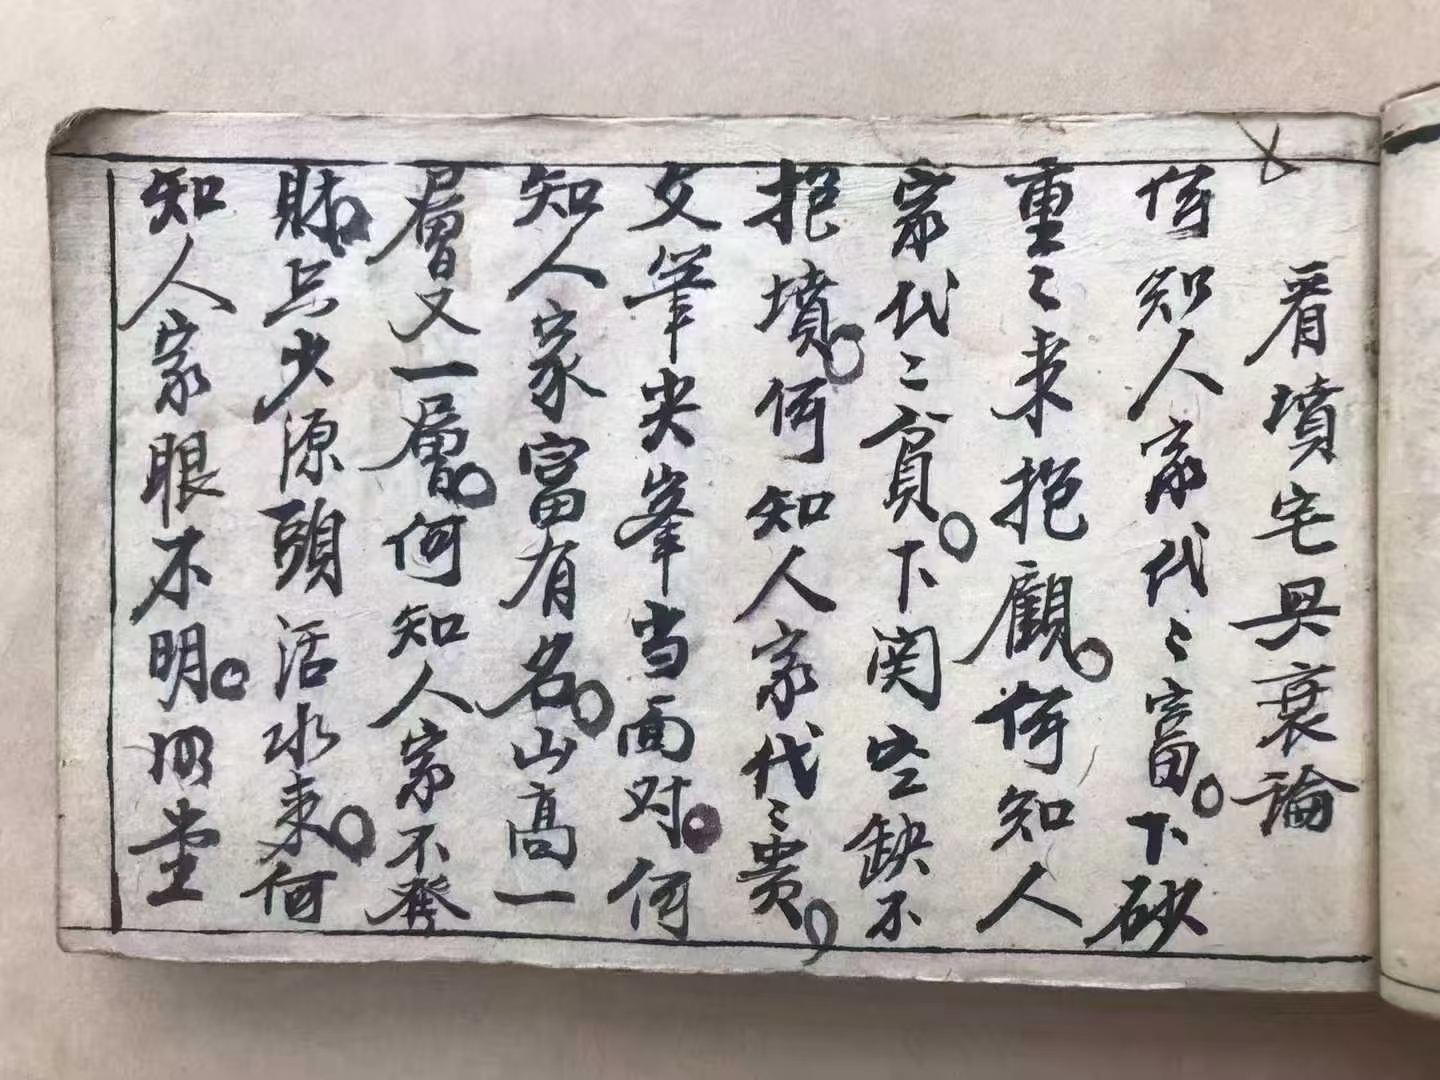 看墳宅興衰論
何知人家代〻富。下砂
重〻來抱顧。何知人
家代〻貧。下関空缺不
抱墳。何知人家代〻貴。
文筆尖峯当面对。何
知人家富有名。山高一
層又一層。何知人家不發
財。只少源頭活水来。何
知人家眼不明。明堂